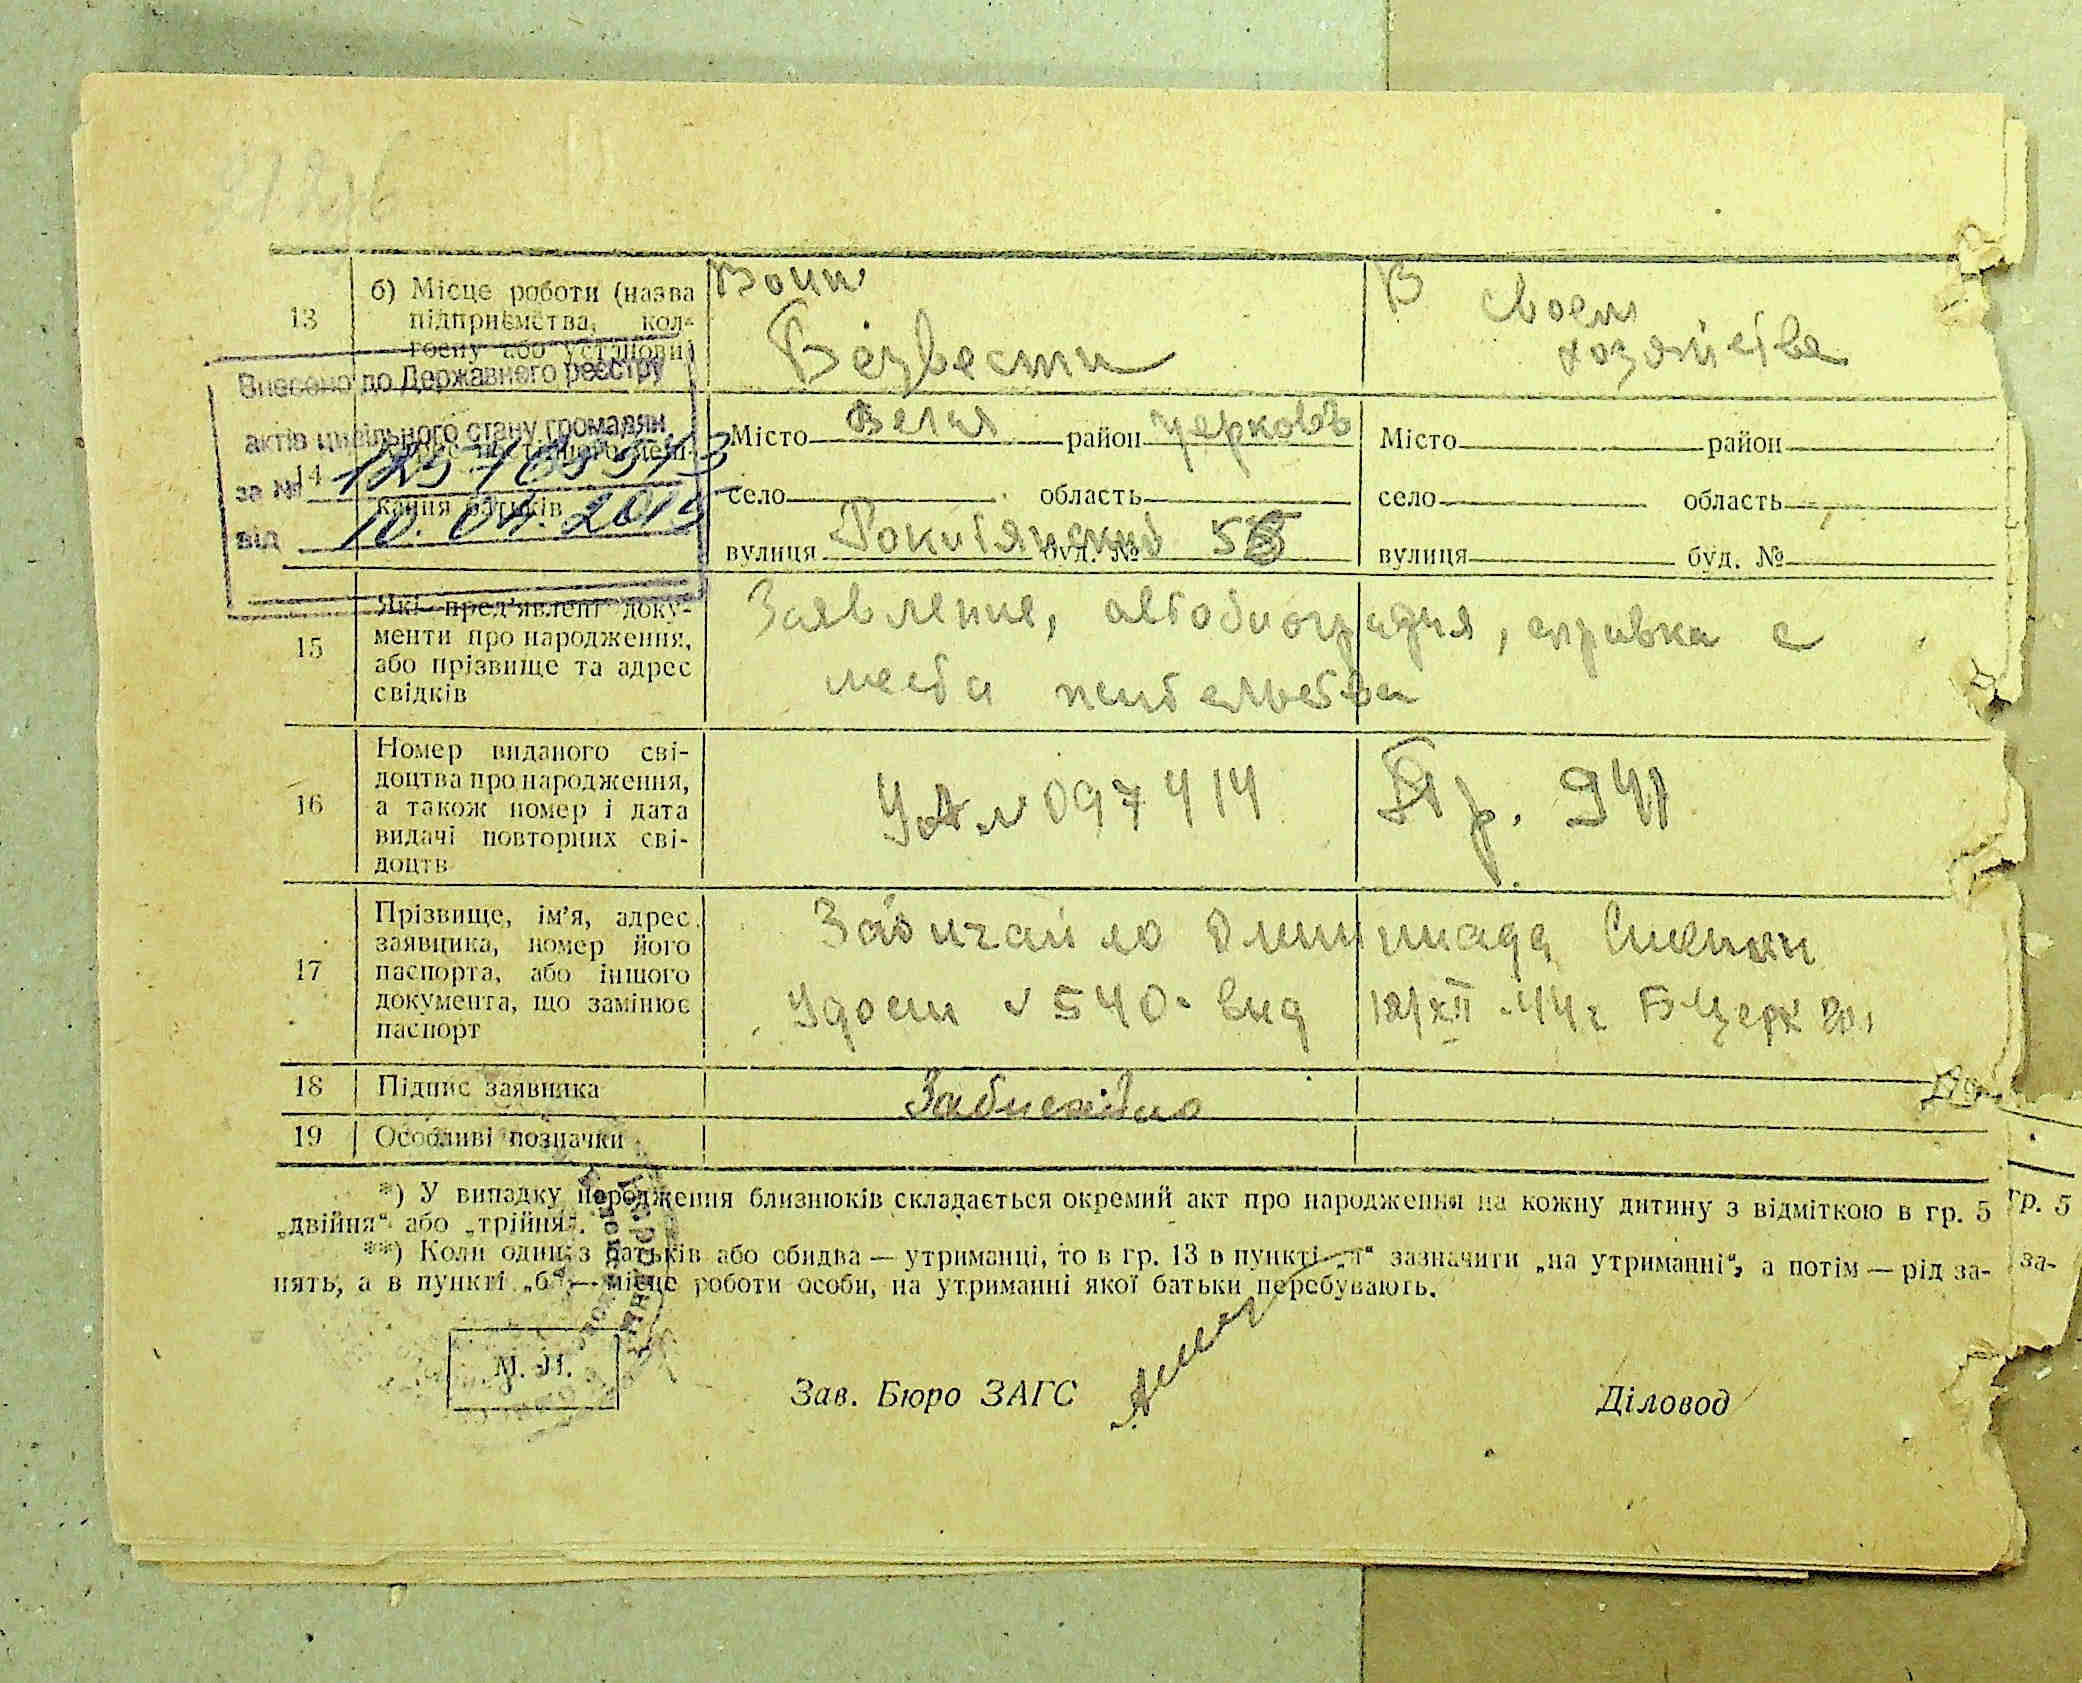 13
б) Місце роботи (назва
підприємства, кол-
госпу або установи
Воин
Безвести
В своем
хозяйстве
Внесено до Державного реєстру
актів цивільного стану громадян
за №
від 10. 04. 201
14
кання батьків
Місто Белая район Церковь
село область
вулиця буд. №
Місто район
село область
вулиця буд. №
15
Які пред'явлені доку-
менти про народження,
або прізвище та адрес
свідків
Заявление, автобиография, справка с
места жительства
16
Номер виданого сві-
доцтва про народження,
а також номер і дата
видачі повторних сві-
доцтв
№ 097414
Пр. 941
17
Прізвище, ім'я, адрес
заявника, номер його
паспорта, або іншого
документа, що замінює
паспорт
Удост № 540. выд 12/XII-44г Б-Церк
18
Підпис заявника
19
Особливі позначки
*) У випадку народження близнюків складається окремий акт про народження на кожну дитину з відміткою в гр. 5
„двійня“ або „трійня“.
**) Коли один з батьків або обидва — утриманці, то в гр. 13 в пункті „а“ зазначити „на утриманні“, а потім — рід за-
нять, а в пункті „б“ — місце роботи особи, на утриманні якої батьки перебувають.
гр. 5
за-
М. П.
Зав. Бюро ЗАГС
Діловод